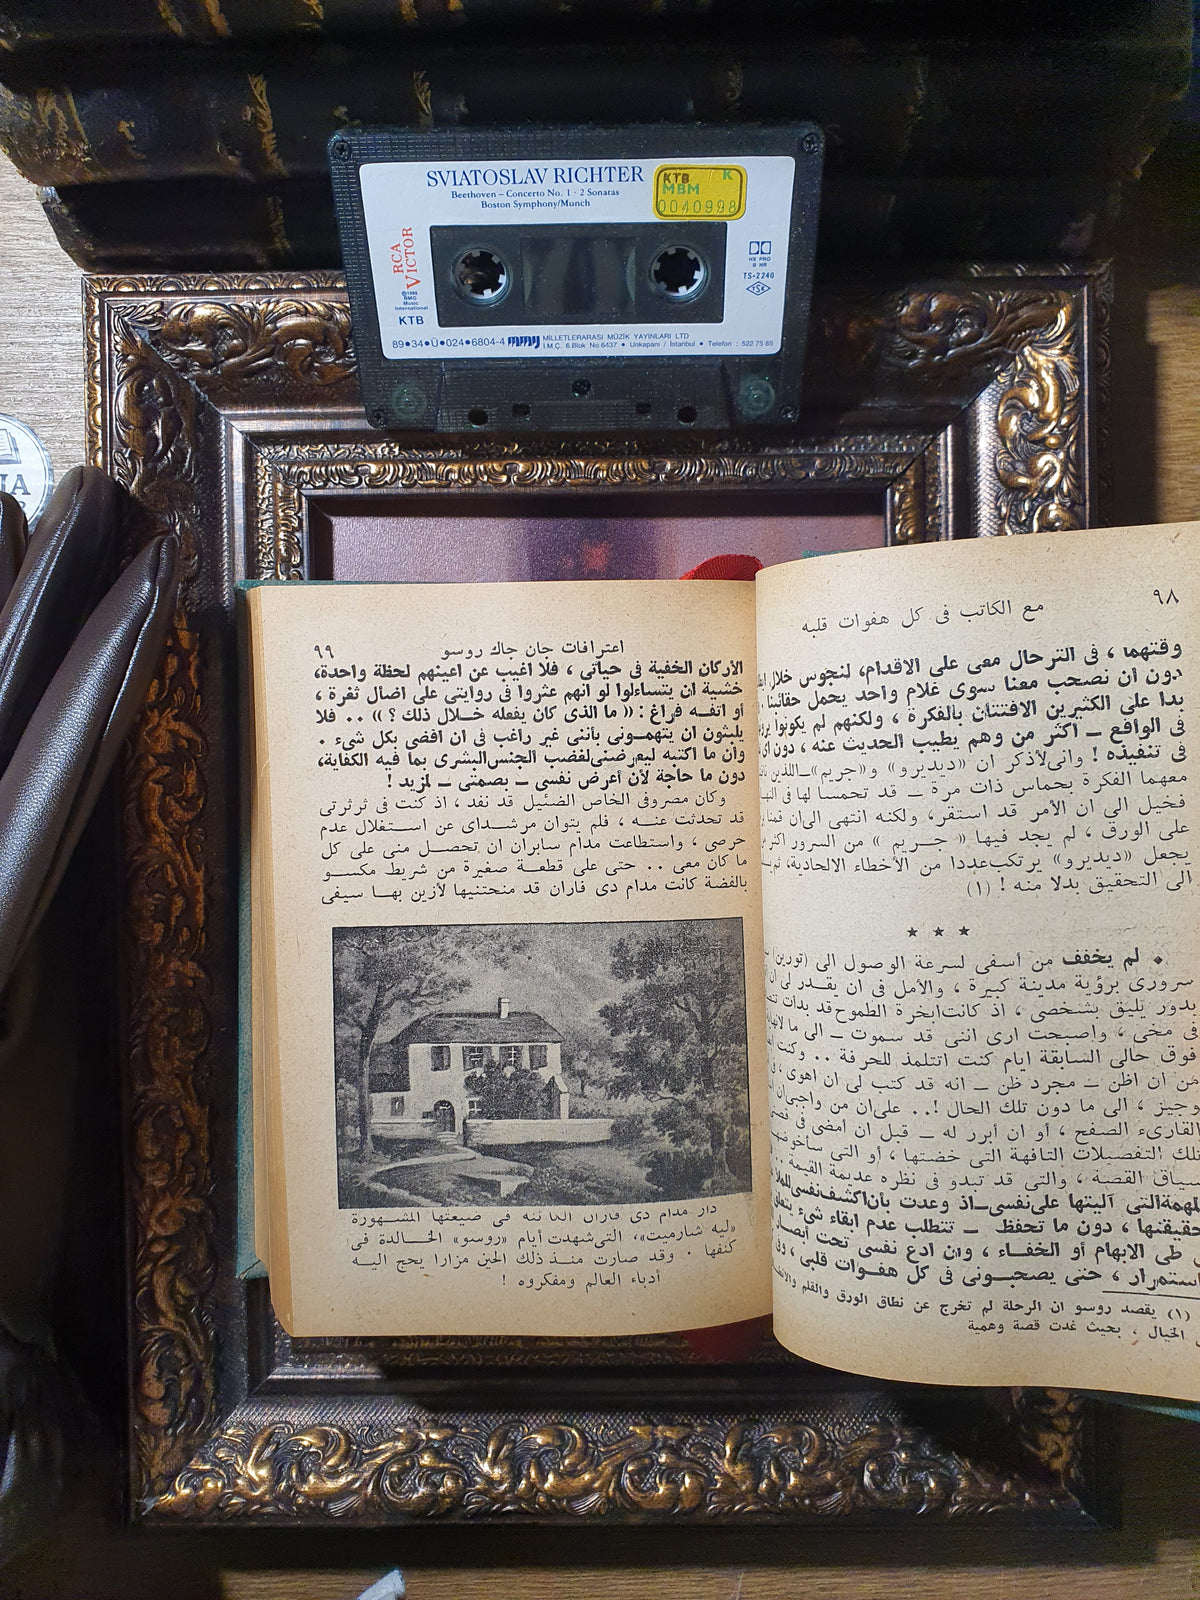 SVIATOSLAV RICHTER
Beethoven – Concerto No. 1 · 2 Sonatas
Boston Symphony/Munch
KTB K
MBM
0040998
RCA VICTOR
℗1988
BMG
Music
International
KTB
HX PRO
B NR
TS-2240
TSE
89●34●Ü●024●6804-4
MİLLETLERARASI MÜZİK YAYINLARI LTD
İ.M.Ç. 6.Blok No.6437 ● Unkapanı / İstanbul ● Telefon : 522 75 85
٩٨
مع الكاتب فى كل هفوات قلبه
وقتهما ، فى الترحال معى على الاقدام، لنجوس خلال
دون ان نصحب معنا سوى غلام واحد يحمل حقائبنا
بدا على الكثيرين الافتتان بالفكرة ، ولكنهم لم يكونوا
فى الواقع ــ اكثر من وهم يطيب الحديث عنه ، دون
فى تنفيذه ! وانى لأذكر ان «ديديرو» و«جريم»ــاللذين
معهما الفكرة بحماس ذات مرة ــ قد تحمسا لها فى
فخيل الى ان الأمر قد استقر، ولكنه انتهى الى ان
على الورق ، لم يجد فيها « جــريم » من السرور
يجعل «ديديرو» يرتكب عددا من الأخطاء الالحادية،
الى التحقيق بدلا منه ! (١)
★ ★ ★
● لم يخفف من أسفى لسرعة الوصول الى (تورين)
سرورى برؤية مدينة كبيرة ، والأمل فى ان يقدر لى
بدور يليق بشخصى ، اذ كانت ابخرة الطموح قد بدأت
فى مخى ، واصبحت ارى اننى قد سموت ــ الى
فوق حالى السابقة ايام كنت اتتلمذ للحرفة .. وكنت
من ان اظن ــ مجرد ظن ــ انه قد كتب لى ان اهوى ،
وجيز ، الى ما دون تلك الحال !.. على ان من واجبى
القارىء الصفح ، أو ان أبرر له ــ قبل ان أمضى فى
تلك التفصيلات التافهة التى خضتها ، أو التى سأخوضها
سياق القصة ، والتى قد تبدو فى نظره عديمة القيمة
المهمة التى آليتها على نفسى ــ اذ وعدت بأن اكشف نفسى
حقيقتها ، دون ما تحفظ ــ تتطلب عدم ابقاء شىء
طى الابهام أو الخفاء ، وان ادع نفسى تحت
استمرار ، حتى يصحبــونى فى كل هفــوات قلبى ،
(١) يقصد روسو ان الرحلة لم تخرج عن نطاق الورق والقلم
الخيال ، بحيث غدت قصة وهمية
اعترافات جان جاك روسو
٩٩
الأركان الخفية فى حياتى ، فلا اغيب عن اعينهم لحظة واحدة،
خشية ان يتساءلوا لو انهم عثروا فى روايتى على اضأل ثغرة ،
أو اتفــه فراغ : « ما الذى كان يفعله خــلال ذلك ؟ » .. فلا
يلبثون ان يتهمــونى بأننى غير راغب فى ان افضى بكل شىء .
وان ما اكتبه ليعرضنى لغضب الجنس البشرى بما فيه الكفاية،
دون ما حاجة لأن أعرض نفسى ــ بصمتى ــ لمزيد !
وكان مصروفى الخاص الضئيل قد نفد ، اذ كنت فى ثرثرتى
قد تحدثت عنــه ، فلم يتوان مرشــداى عن استــغلال عدم
حرصى ، واستطاعت مدام سابران ان تحصــل منى على كل
ما كان معى .. حتى على قطعــة صغيرة من شريط مكســو
بالفضة كانت مدام دى فاران قد منحتنيها لأزين بهــا سيفى
دار مدام دى فاران الكائنه فى ضيعتها المشــهورة
«ليه شارميت»، التى شهدت أيام «روسو» الخــالدة فى
كنفها . وقد صارت منــذ ذلك الحين مزارا يحج اليــه
أدباء العالم ومفكروه !